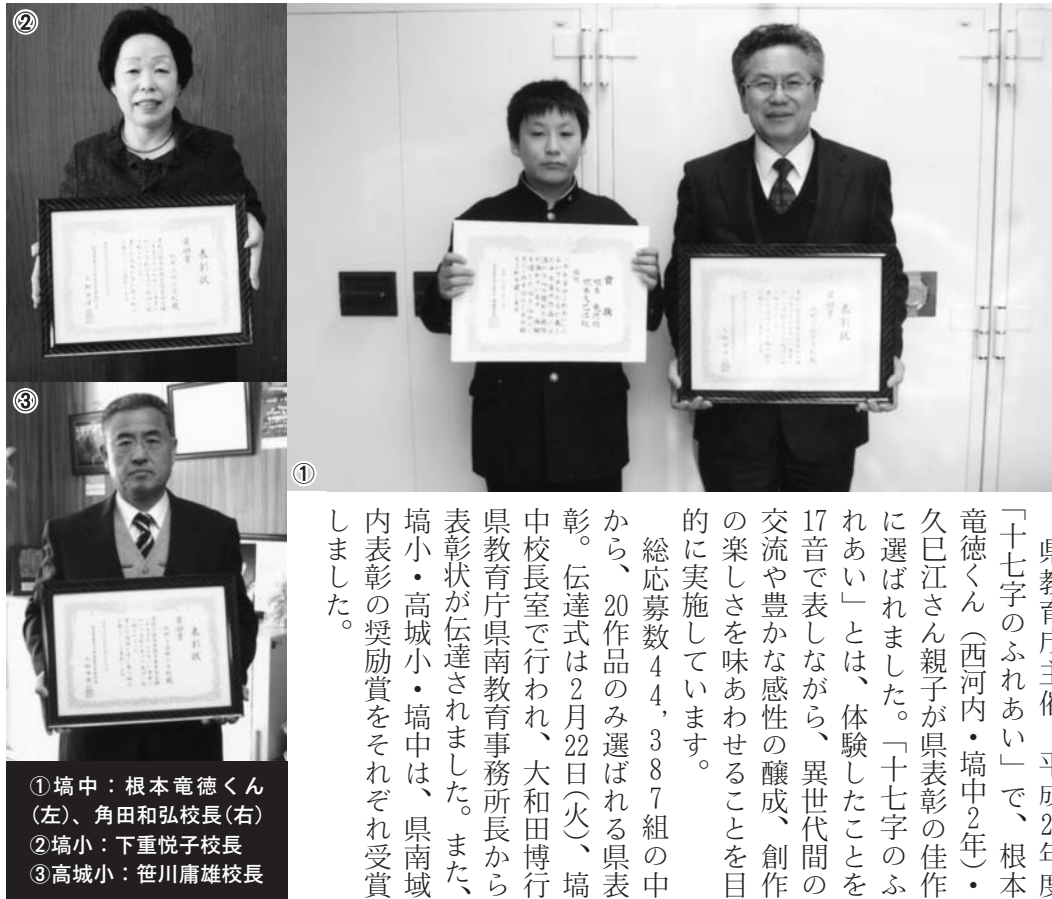 ②
表彰状
奨励賞
①
賞状
表彰状
奨励賞
③
表彰状
奨励賞
県教育庁主催 平成2年度
「十七字のふれあい」で、根本
竜徳くん（西河内・塙中2年）・
久巳江さん親子が県表彰の佳作
に選ばれました。「十七字のふ
れあい」とは、体験したことを
17音で表しながら、異世代間の
交流や豊かな感性の醸成、創作
の楽しさを味あわせることを目
的に実施しています。
総応募数44,387組の中
から、20作品のみ選ばれる県表
彰。伝達式は2月22日(火)、塙
中校長室で行われ、大和田博行
県教育庁県南教育事務所長から
表彰状が伝達されました。また、
塙小・高城小・塙中は、県南域
内表彰の奨励賞をそれぞれ受賞
しました。
①塙中：根本竜徳くん
(左)、角田和弘校長(右)
②塙小：下重悦子校長
③高城小：笹川庸雄校長